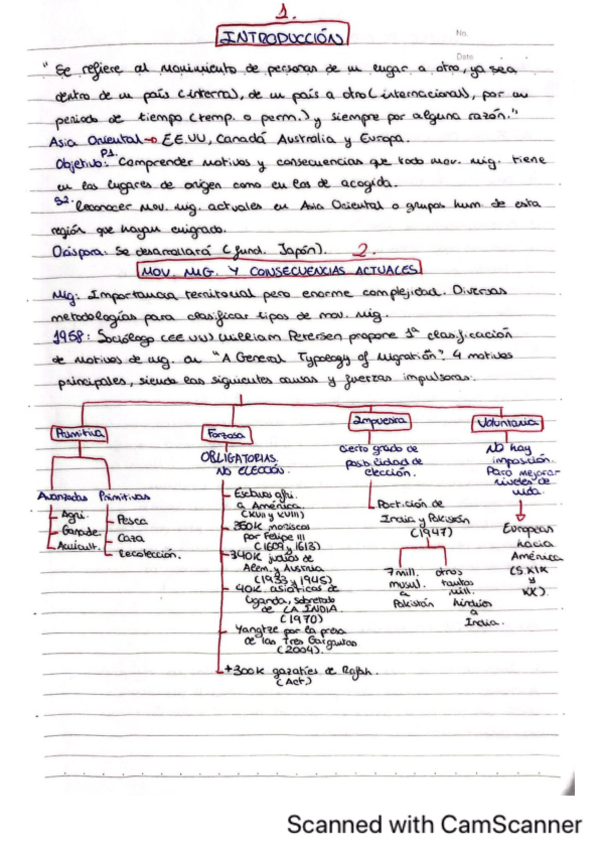 1.
INTRODUCCIÓN
No.
Date
"Se refiere al movimiento de personas de un lugar a otro, ya sea
dentro de un país (interna), de un país a otro (internacional), por un
periodo de tiempo (temp. o perm.) y siempre por alguna razón."
Asia Oriental → EE.UU, Canadá Australia y Europa.
Objetivo: P1. Comprender motivos y consecuencias que todo mov. mig. tiene
en los lugares de origen como en los de acogida.
S2. Reconocer mov. mig. actuales en Asia Oriental o grupos hum. de esta
región que hayan emigrado.
Diáspora: Se desarrollará (fund. Japón).
2.
MOV. MIG. Y CONSECUENCIAS ACTUALES
Mig: Importancia territorial pero enorme complejidad. Diversas
metodologías para clasificar tipos de mov. mig.
1958: Sociólogo (EE.UU) William Petersen propone 1ª clasificación
de motivos de mig. en "A General Typology of Migration": 4 motivos
principales, siendo las siguientes causas y fuerzas impulsoras:
Primitiva
Avanzadas
- Agri.
- Ganade.
Primitivas
- Pesca
- Caza
- Recolección.
Forzosa
OBLIGATORIAS.
NO ELECCIÓN.
- Esclavos afri.
a América.
(XVII y XVIII)
- 350K moriscos
por Felipe III
(1609 y 1613)
- 340K judíos de
Alem. y Austria
(1933 y 1945)
- 40K asiáticos de
Uganda, sobretodo
de LA INDIA.
(1970)
- Yangtze por la presa
de las Tres Gargantas
(2004).
- +300K gazatíes de Rafah.
(Act.)
Impuesta
Cierto grado de
posibilidad de
elección.
Partición de
India y Pakistán
(1947)
7 mill.
musul.
a
Pakistán
otros
tantos
mill.
hindúes
a
India.
Voluntaria
No hay
imposición.
Para mejorar
niveles de
vida.
Europeas
hacia
América
(S XIX
y
XX).
Scanned with CamScanner